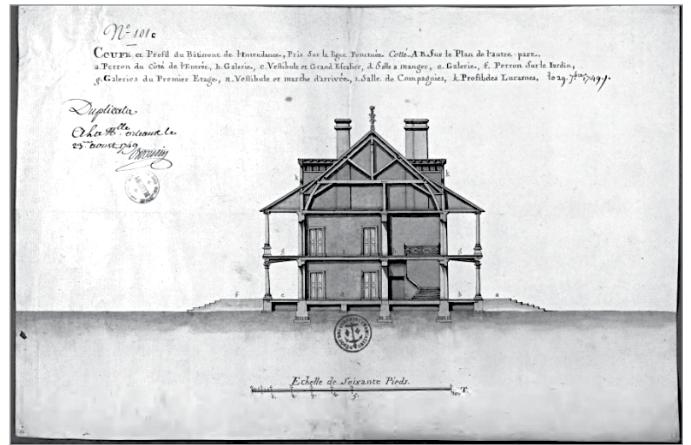 N.º 101c
Coupe et Profil du Bâtiment de l'Intendance, Pris Sur la ligne Ponctuée Cotté AB Sur le Plan de l'autre part.
a. Perron du Côté de l'Entrée, b. Galerie, c. Vestibule et Grand Escalier, d. Salle a manger, e. Galerie, f. Perron Sur le Jardin,
g. Galeries du Premier Etage, h. Vestibule et marche d'arrivée, i. Salle de Compagnies, k. Profil des Lucarnes,
Duplicata
A la Nlle orleans le
23 aoust 1749
Echelle de Seixante Pieds.